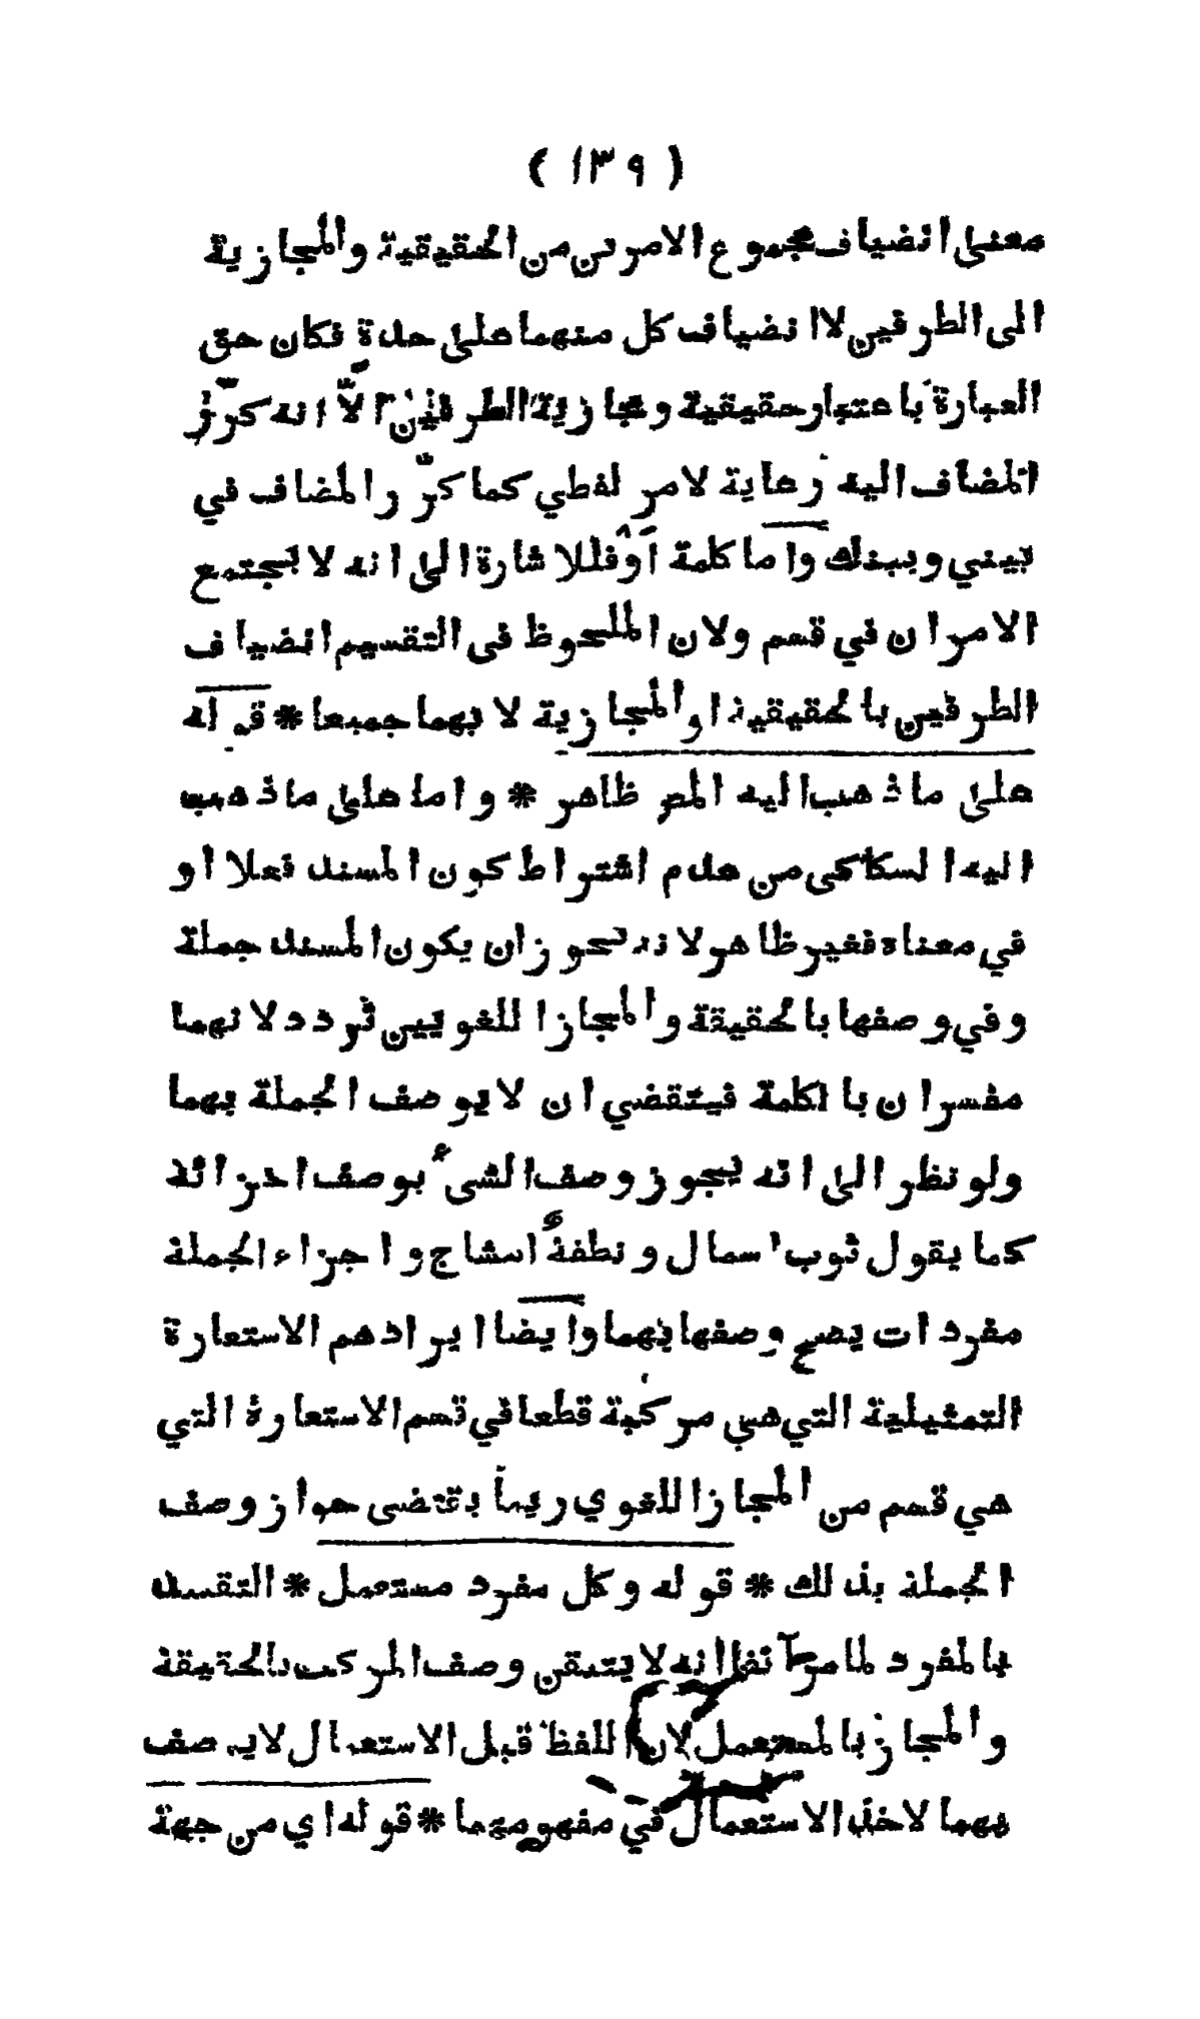 ( ١٣٩ )
معنى انضياف مجموع الامرين من الحقيقية والمجازية
الى الطرفين لا انضياف كل منهما على حدة فكان حق
العبارة باعتبار حقيقية ومجازية الطرفين الّا انه كرّر
المضاف اليه رعاية لامر لفظي كما كرّر المضاف في
بيني وبينك واما كلمة أو فللاشارة الى انه لا تجتمع
الامران في قسم ولان الملحوظ فى التقسيم انضياف
الطرفين بالحقيقية او المجازية لا بهما جميعا * قوله
على ما ذهب اليه المص ظاهر * واما على ما ذهب
اليه السكاكى من عدم اشتراط كون المسند فعلا او
في معناه فغير ظاهر لانه تجوز ان يكون المسند جملة
وفي وصفها بالحقيقة والمجاز اللغويين تردد لانهما
مفسران بالكلمة فيتقضي ان لا يوصف الجملة بهما
ولو نظر الى انه يجوز وصف الشىء بوصف اجزائه
كما يقول ثوب اسمال ونطفةٌ امشاج واجزاء الجملة
مفردات يصح وصفها بهما وايضا ايرادهم الاستعارة
التمثيلية التي هي مركبة قطعا في قسم الاستعارة التي
هي قسم من المجاز اللغوي ربما يقتضى جواز وصف
الجملة بذلك * قوله وكل مفرد مستعمل * التقييد
بالمفرد لما مر آنفا انه لا يتيقن وصف المركب بالحقيقة
والمجاز بالمستعمل لان اللفظ قبل الاستعمال لا يوصف
بهما لاخذ الاستعمال في مفهوميهما * قوله اي من جهة